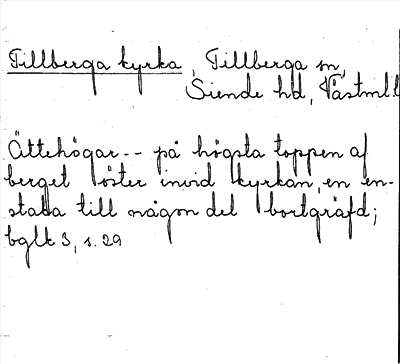 Tillberga kyrka, Tillberga sn,
Siende hd, Västml
Ättehögar -- på högsta toppen af
berget öster invid kyrkan, en en-
staka till någon del bortgräfd;
bglk 3, s. 29